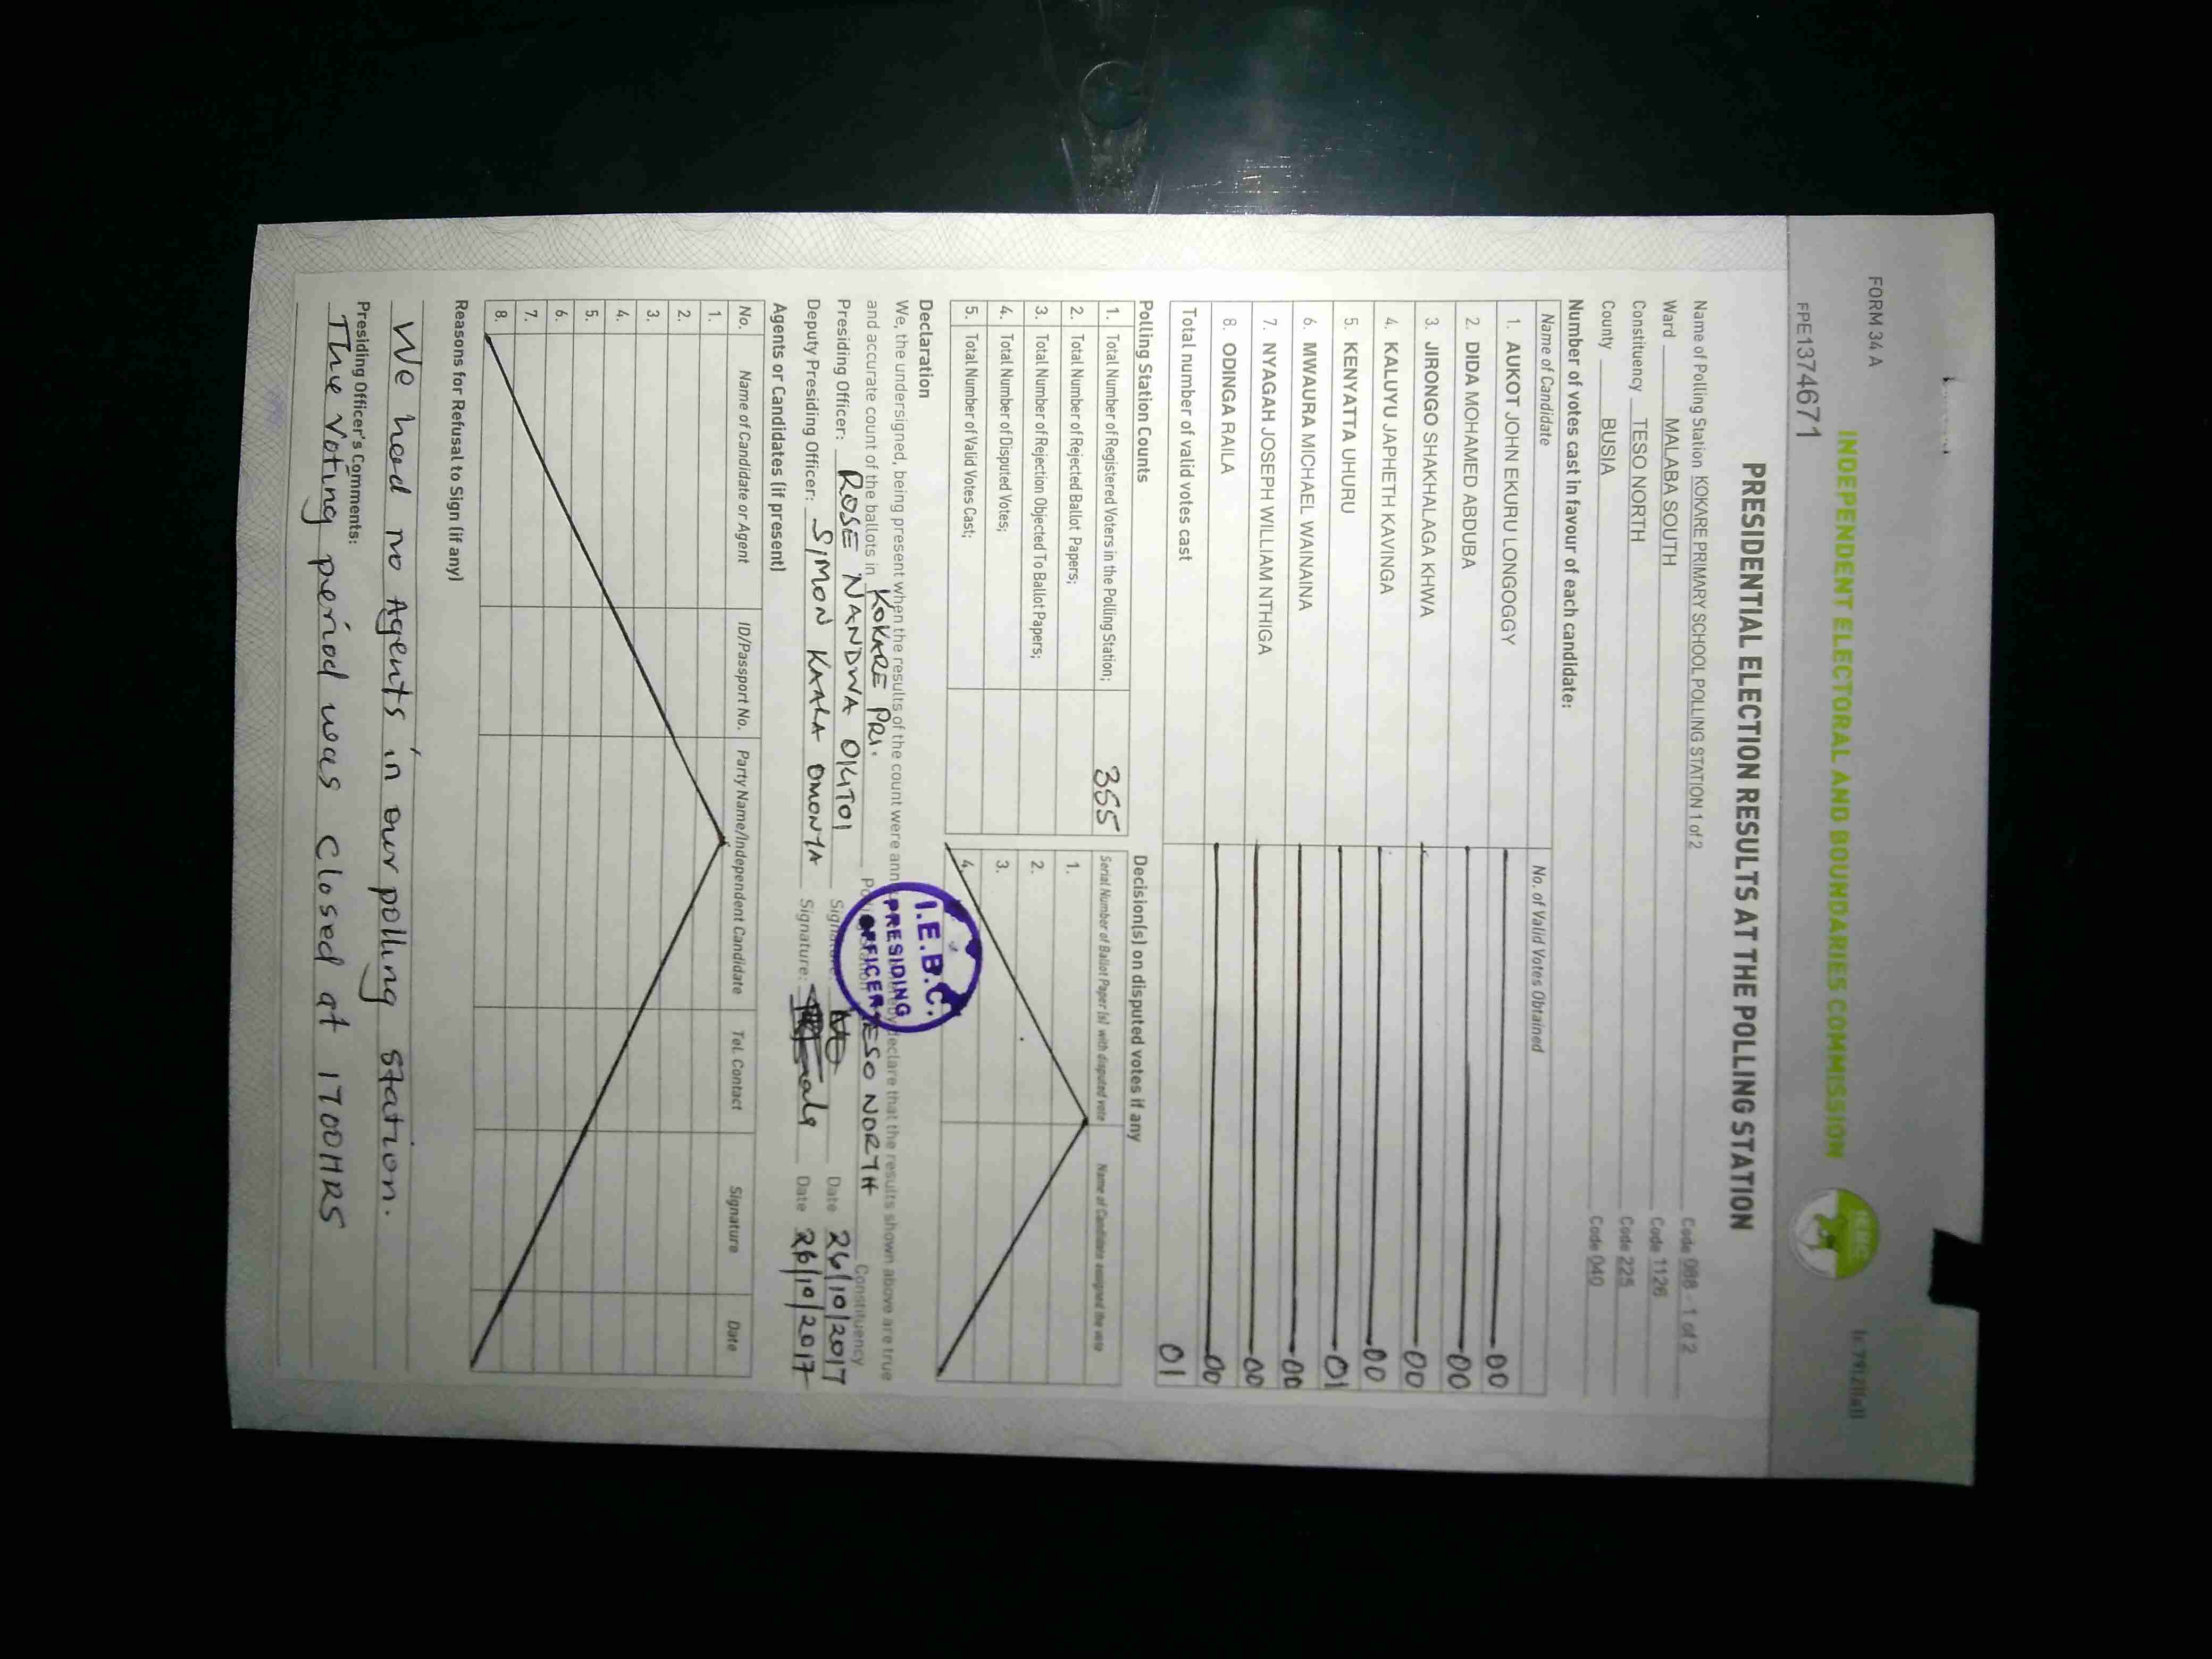 FORM 34 A
INDEPENDENT ELECTORAL AND BOUNDARIES COMMISSION
IEBC
FPE1374671
PRESIDENTIAL ELECTION RESULTS AT THE POLLING STATION
Name of Polling Station KOKARE PRIMARY SCHOOL POLLING STATION 1 of 2 Code 088 - 1 of 2
Ward MALABA SOUTH Code 1126
Constituency TESO NORTH Code 225
County BUSIA Code 040
Number of votes cast in favour of each candidate:
Name of Candidate No. of Valid Votes Obtained
1. AUKOT JOHN EKURU LONGOGGY 00
2. DIDA MOHAMED ABDUBA 00
3. JIRONGO SHAKHALAGA KHWA 00
4. KALUYU JAPHETH KAVINGA 00
5. KENYATTA UHURU 01
6. MWAURA MICHAEL WAINAINA 00
7. NYAGAH JOSEPH WILLIAM NTHIGA 00
8. ODINGA RAILA 00
Total number of valid votes cast 01
Polling Station Counts Decision(s) on disputed votes if any
1. Total Number of Registered Voters in the Polling Station; 355 Serial Number of Ballot Paper (s) with disputed vote Name of Candidate assigned the vote
2. Total Number of Rejected Ballot Papers; 1.
3. Total Number of Rejection Objected To Ballot Papers; 2.
4. Total Number of Disputed Votes; 3.
5. Total Number of Valid Votes Cast; 4.
Declaration
We, the undersigned, being present when the results of the count were declare that the results shown above are true
and accurate count of the ballots in KOKARE PRI. TESO NORTH Constituency
Presiding Officer: ROSE NANDWA OKITOI Signature: Date 26/10/2017
Deputy Presiding Officer: SIMON KAALA OMONYA Signature: Date 26/10/2017
I.E.B.C.
PRESIDING
OFFICER
Agents or Candidates (if present)
No. Name of Candidate or Agent ID/Passport No. Party Name/Independent Candidate Tel. Contact Signature Date
1.
2.
3.
4.
5.
6.
7.
8.
Reasons for Refusal to Sign (if any)
We had no Agents in our polling station.
Presiding Officer's Comments:
The voting period was closed at 1700HRS